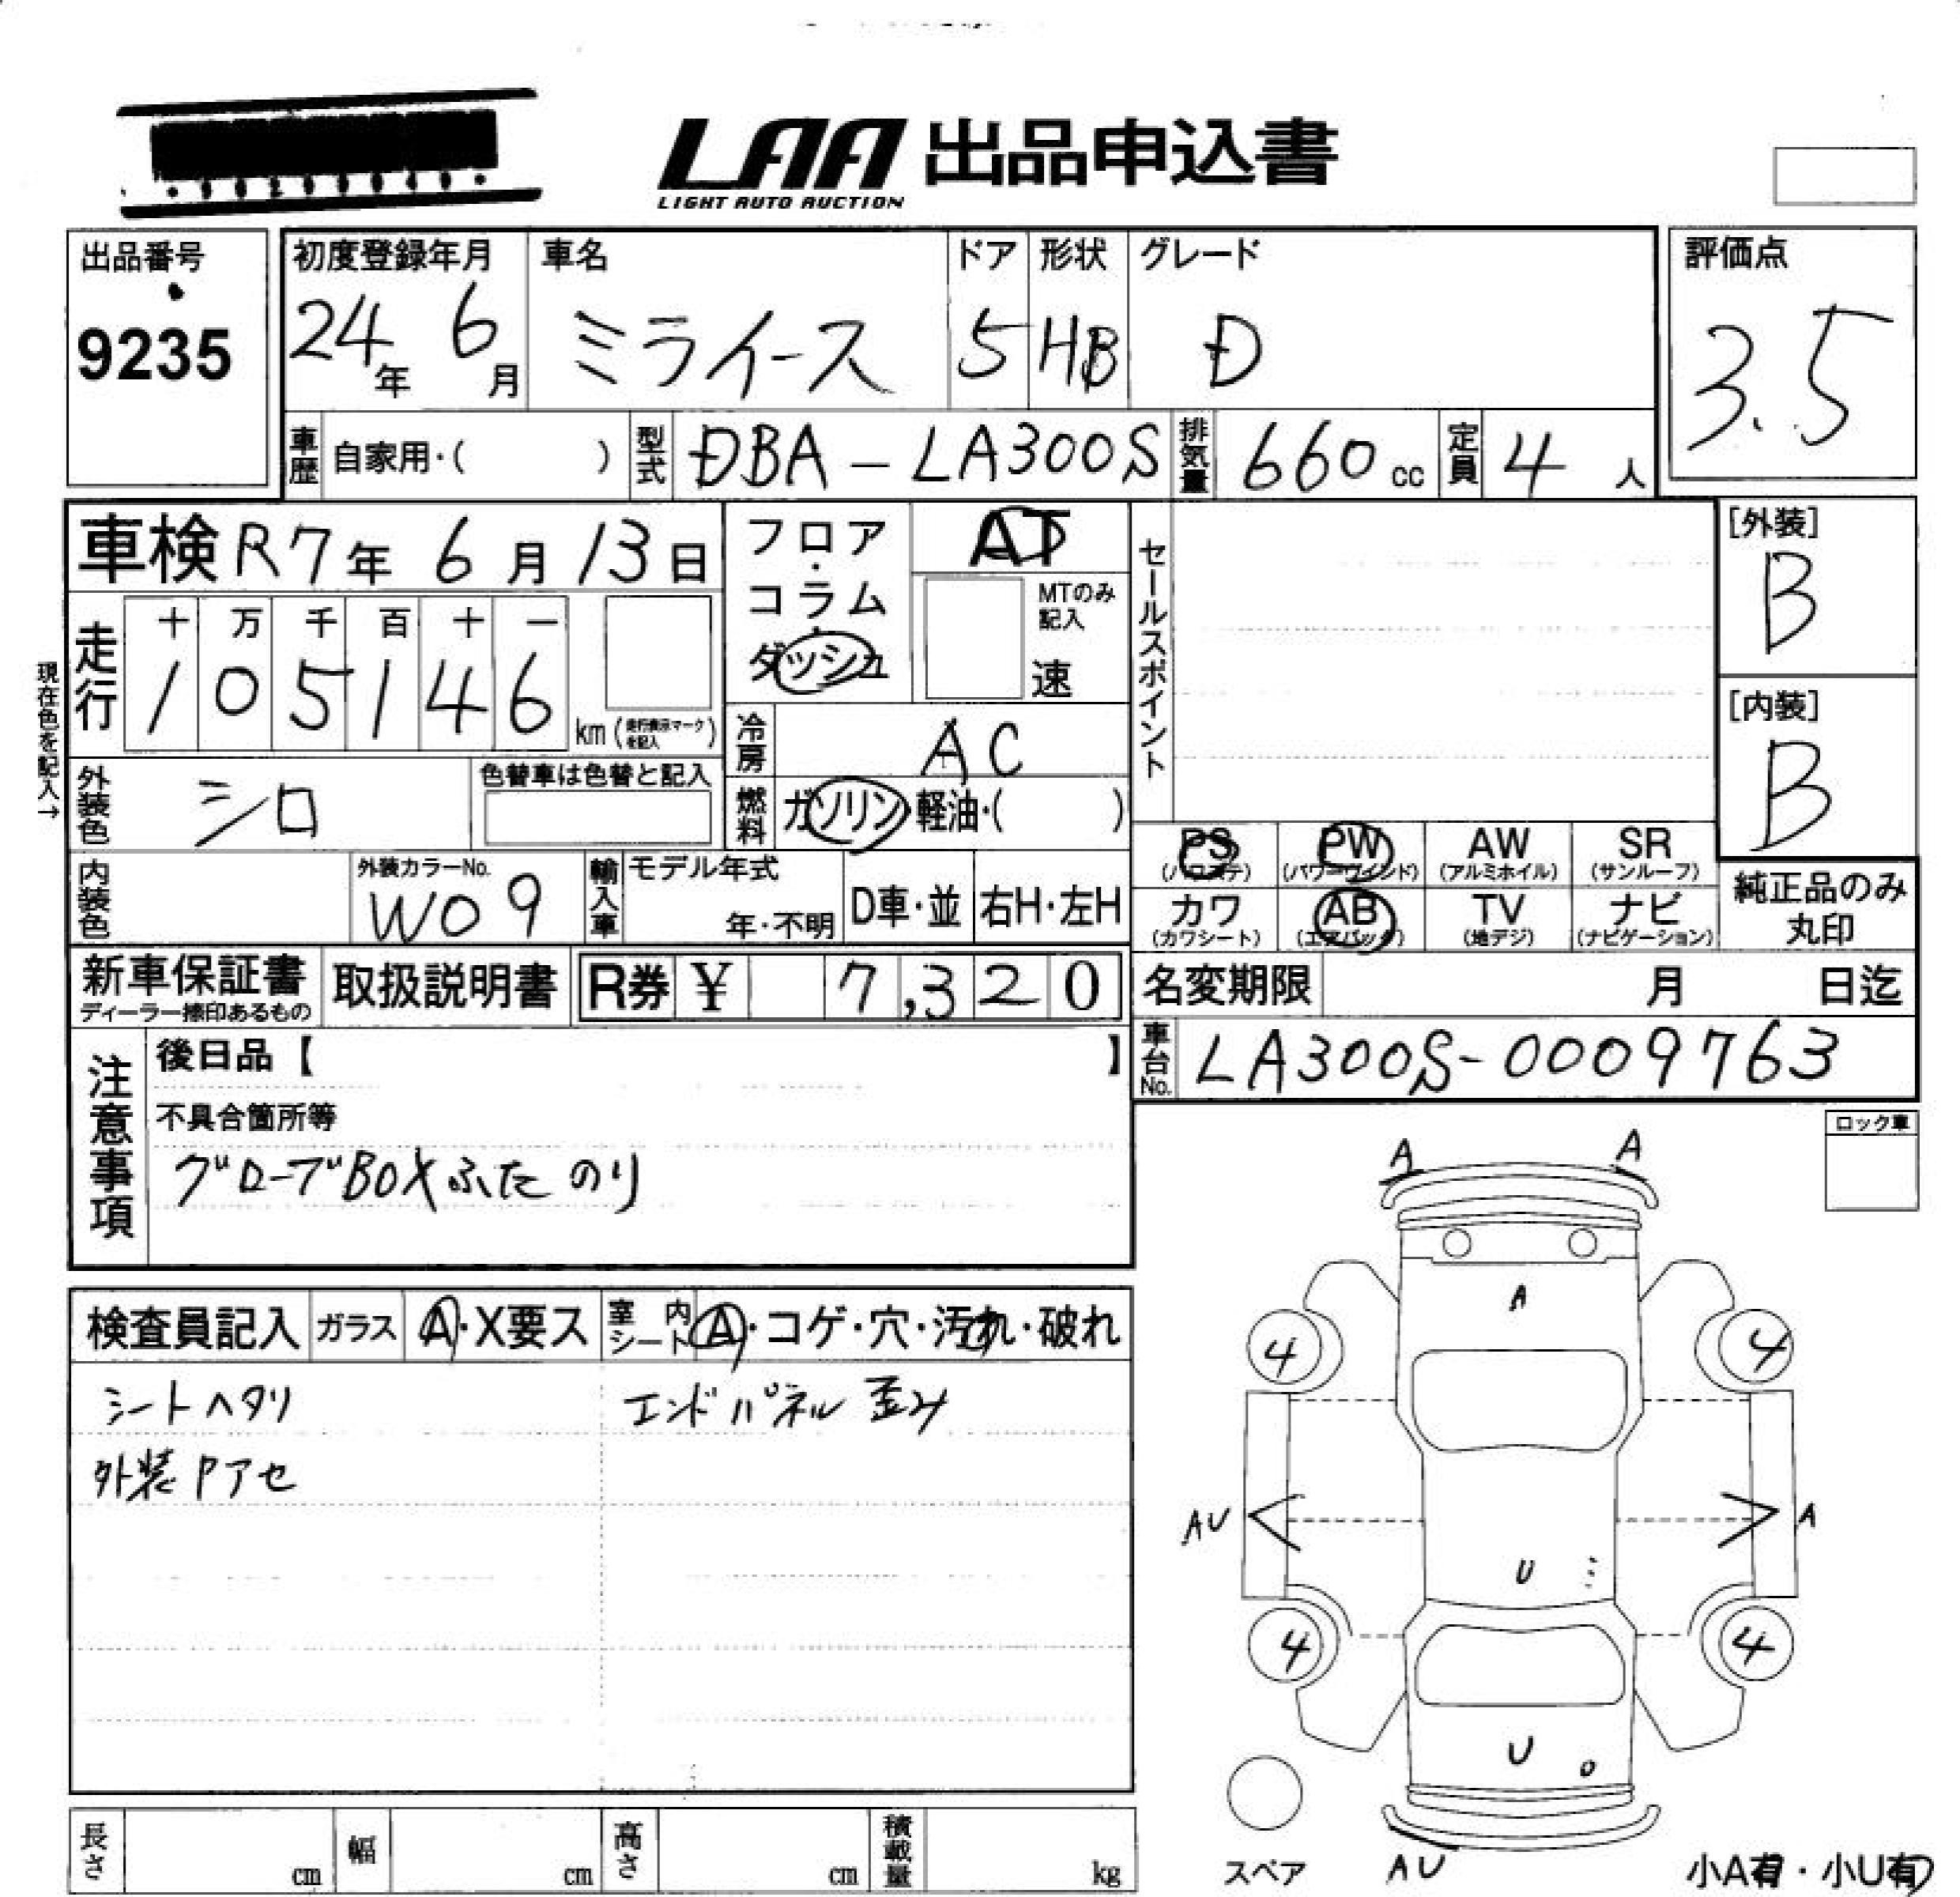 LAA 出品申込書
LIGHT AUTO AUCTION
出品番号
9235
初度登録年月
24年 6月
車名
ミライース
ドア
5
形状
HB
グレード
D
評価点
3.5
車歴 自家用・( )
型式 DBA-LA300S
排気量 660cc
定員 4人
車検 R7年 6月 13日
フロア・コラム・ダッシュ
AT
MTのみ記入
速
セールスポイント
[外装]
B
[内装]
B
現在色を記入→
走行
十 万 千 百 十 一
1 0 5 1 4 6
km (走行表示マークを記入)
冷房 AC
外装色 シロ
色替車は色替と記入
燃料 ガソリン・軽油・( )
PS (パワステ)
PW (パワーウインド)
AW (アルミホイル)
SR (サンルーフ)
カワ (カワシート)
AB (エアバック)
TV (地デジ)
ナビ (ナビゲーション)
純正品のみ丸印
内装色
外装カラーNo.
W09
輸入車
モデル年式
年・不明
D車・並
右H・左H
新車保証書
ディーラー捺印あるもの
取扱説明書
R券 ¥ 7,320
名変期限 月 日迄
車台No. LA300S-0009763
注意事項
後日品【 】
不具合箇所等
グローブBOXふた のり
ロック車
検査員記入
ガラス A・X要ス
室内シート A・コゲ・穴・汚れ・破れ
シートヘタリ
エンドパネル歪み
外装Pアセ
A
A
A
4
4
AU
A
U
4
4
U
AU
スペア
小A有・小U有
長さ cm
幅 cm
高さ cm
積載量 kg